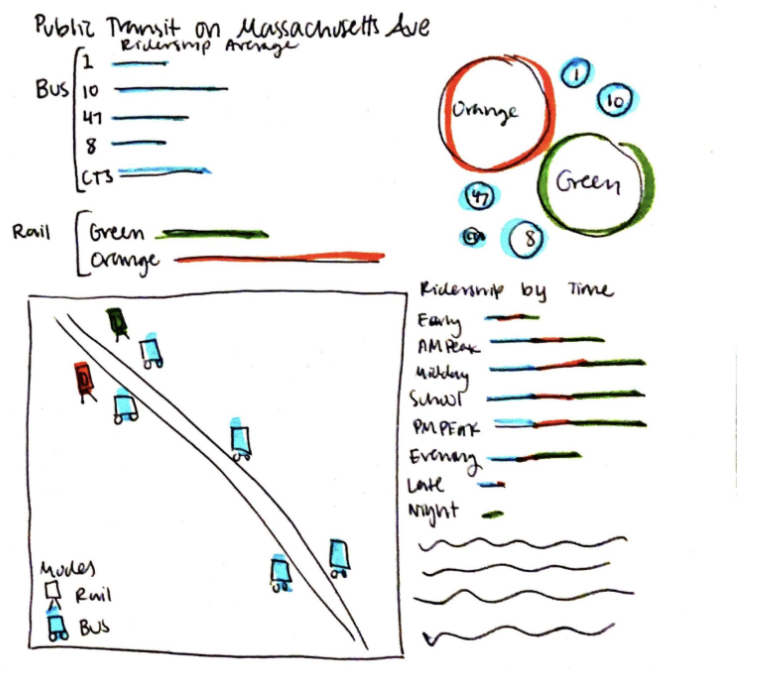 Public Transit on Massachusetts Ave
Ridership Average
Bus
1
10
47
8
CT3
Rail
Green
Orange
Orange
1
10
Green
47
8
Ridership by Time
Early
AM Peak
Midday
School
PM PEAK
Evening
Late
Night
Modes
Rail
BUS